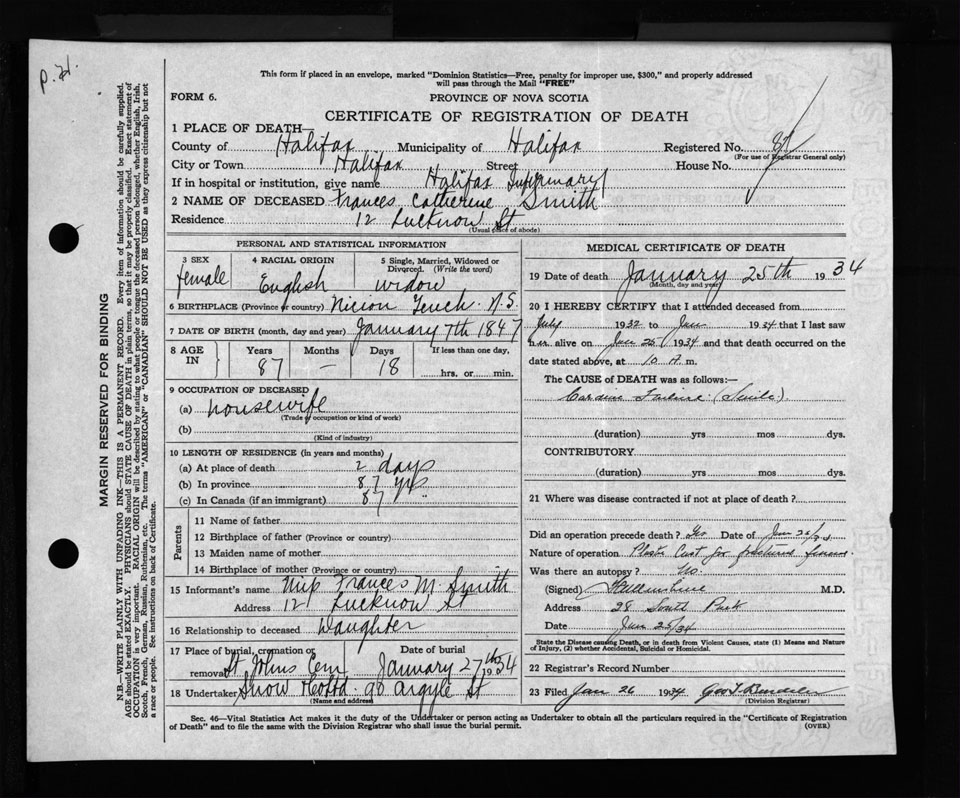 p. 21.
This form if placed in an envelope, marked "Dominion Statistics—Free, penalty for improper use, $300," and properly addressed
will pass through the Mail "FREE"
FORM 6.
PROVINCE OF NOVA SCOTIA
CERTIFICATE OF REGISTRATION OF DEATH
1 PLACE OF DEATH—
County of Halifax Municipality of Halifax Registered No.
(For use of Registrar General only)
City or Town Halifax Street House No.
If in hospital or institution, give name Halifax Infirmary
2 NAME OF DECEASED Frances Catherine Smith
Residence 12 Lucknow St
(Usual place of abode)
MARGIN RESERVED FOR BINDING
N.B.—WRITE PLAINLY WITH UNFADING INK—THIS IS A PERMANENT RECORD. Every item of information should be carefully supplied.
AGE should be stated EXACTLY. PHYSICIANS should STATE CAUSE OF DEATH in plain terms, so that it may be properly classified. Exact statement of
OCCUPATION is very important. RACIAL ORIGIN will be described by stating to what people or tongue the deceased person belonged, whether English, Irish,
Scotch, French, German, Russian, Ruthenian, etc. The terms "AMERICAN" or "CANADIAN" SHOULD NOT BE USED as they express citizenship but not
a race or people. See instructions on back of Certificate.
PERSONAL AND STATISTICAL INFORMATION
3 SEX 4 RACIAL ORIGIN 5 Single, Married, Widowed or
Divorced. (Write the word)
female English widow
6 BIRTHPLACE (Province or country) N.S.
7 DATE OF BIRTH (month, day and year) January 7th 1847
8 AGE IN Years Months Days If less than one day,
87 — 18 hrs. or min.
9 OCCUPATION OF DECEASED
(a) housewife
(Trade or occupation or kind of work)
(b)
(Kind of industry)
10 LENGTH OF RESIDENCE (in years and months)
(a) At place of death 2 days
(b) In province 87 yrs
(c) In Canada (if an immigrant) 87 "
Parents
11 Name of father
12 Birthplace of father (Province or country)
13 Maiden name of mother
14 Birthplace of mother (Province or country)
15 Informant's name Miss Frances M. Smith
Address 12 Lucknow St
16 Relationship to deceased Daughter
17 Place of burial, cremation or Date of burial
removal St Johns Cem January 27th 1934
18 Undertaker Snow & Co Ltd. 90 Argyle St
(Name and address)
MEDICAL CERTIFICATE OF DEATH
19 Date of death January 25th 1934
(Month, day and year)
20 I HEREBY CERTIFY that I attended deceased from
July 1932 to Jan 1934 that I last saw
her alive on Jan 25 1934 and that death occurred on the
date stated above, at 10 A. m.
The CAUSE of DEATH was as follows:—
Cardiac Failure (Senile)
(duration) yrs mos dys.
CONTRIBUTORY
(duration) yrs mos dys.
21 Where was disease contracted if not at place of death?
Did an operation precede death? Yes Date of
Nature of operation Plaster Cast for fractured femur
Was there an autopsy? No.
(Signed) M.D.
Address 28 South Park
Date Jan 25/34
State the Disease causing Death, or in death from Violent Causes, state (1) Means and Nature
of Injury, (2) whether Accidental, Suicidal or Homicidal.
22 Registrar's Record Number
23 Filed Jan 26 1934
(Division Registrar)
Sec. 46—Vital Statistics Act makes it the duty of the Undertaker or person acting as Undertaker to obtain all the particulars required in the "Certificate of Registration
of Death" and to file the same with the Division Registrar who shall issue the burial permit.
(OVER)